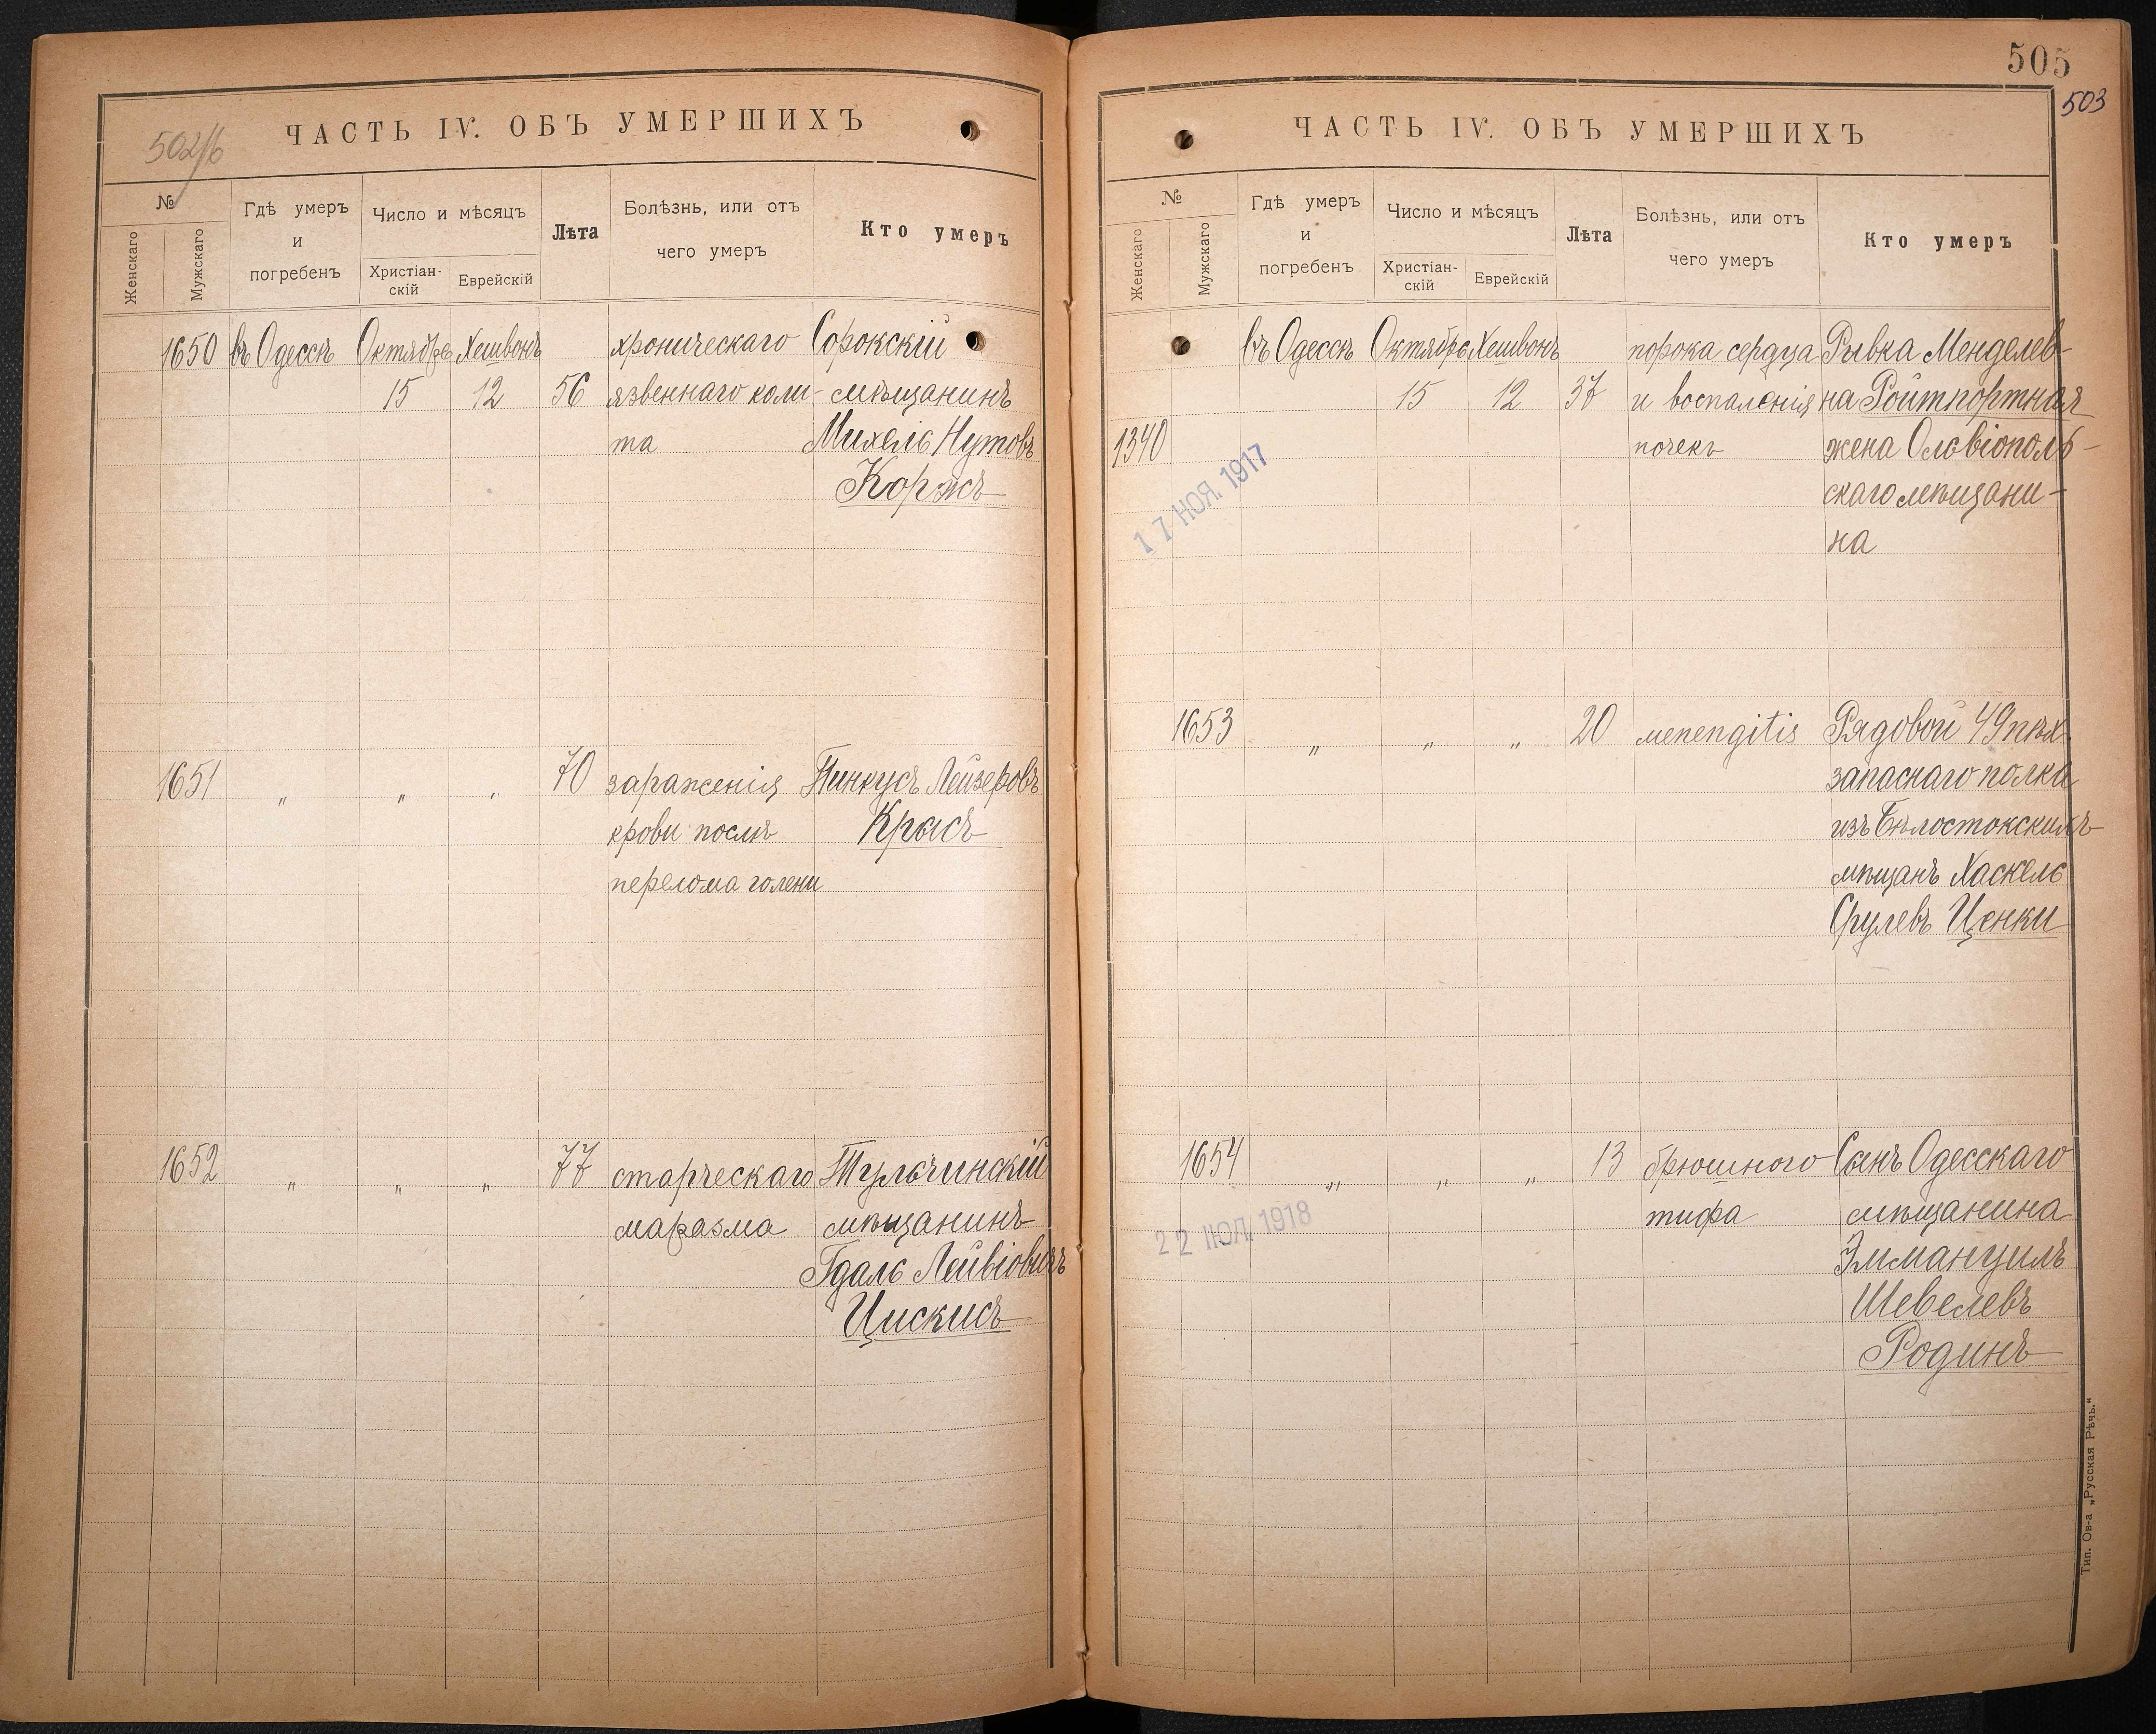 502/б
ЧАСТЬ IV. ОБЪ УМЕРШИХЪ
№
Женскаго
Мужскаго
Гдѣ умеръ
и
погребенъ
Число и мѣсяцъ
Христіан-
скій
Еврейскій
Лѣта
Болѣзнь, или отъ
чего умеръ
Кто умеръ
1650 въ Одессѣ Октябрь Хешвонъ хроническаго Сорокскій
15 12 56 язвеннаго коли- мѣщанинъ
та Михель Нутовъ
Коржъ
1651 „ „ „ 70 зараженія Пинкусъ Лейзеровъ
крови послѣ Крысъ
перелома голени
1652 „ „ „ 77 старческаго Тульчинскій
маразма мѣщанинъ
Гдаль Лейвіовичъ
Цискисъ
505
503
ЧАСТЬ IV. ОБЪ УМЕРШИХЪ
№
Женскаго
Мужскаго
Гдѣ умеръ
и
погребенъ
Число и мѣсяцъ
Христіан-
скій
Еврейскій
Лѣта
Болѣзнь, или отъ
чего умеръ
Кто умеръ
въ Одессѣ Октябрь Хешвонъ порока сердца Рывка Менделев-
15 12 37 и воспаленія на Ройтпортная
1340 почекъ жена Ольвіополь-
скаго мѣщани-
на
17 НОЯ. 1917
1653 „ „ „ 20 menengitis Рядовой 49 пѣх.
запаснаго полка
изъ Бѣлостокскихъ
мѣщанъ Хаскель
Срулевъ Ценки
1654 „ „ „ 13 брюшного Сынъ Одесскаго
тифа мѣщанина
Эммануилъ
Шевелевъ
Родинъ
22 ІЮЛ. 1918
Тип. Ов-а „Русская Рѣчь.“